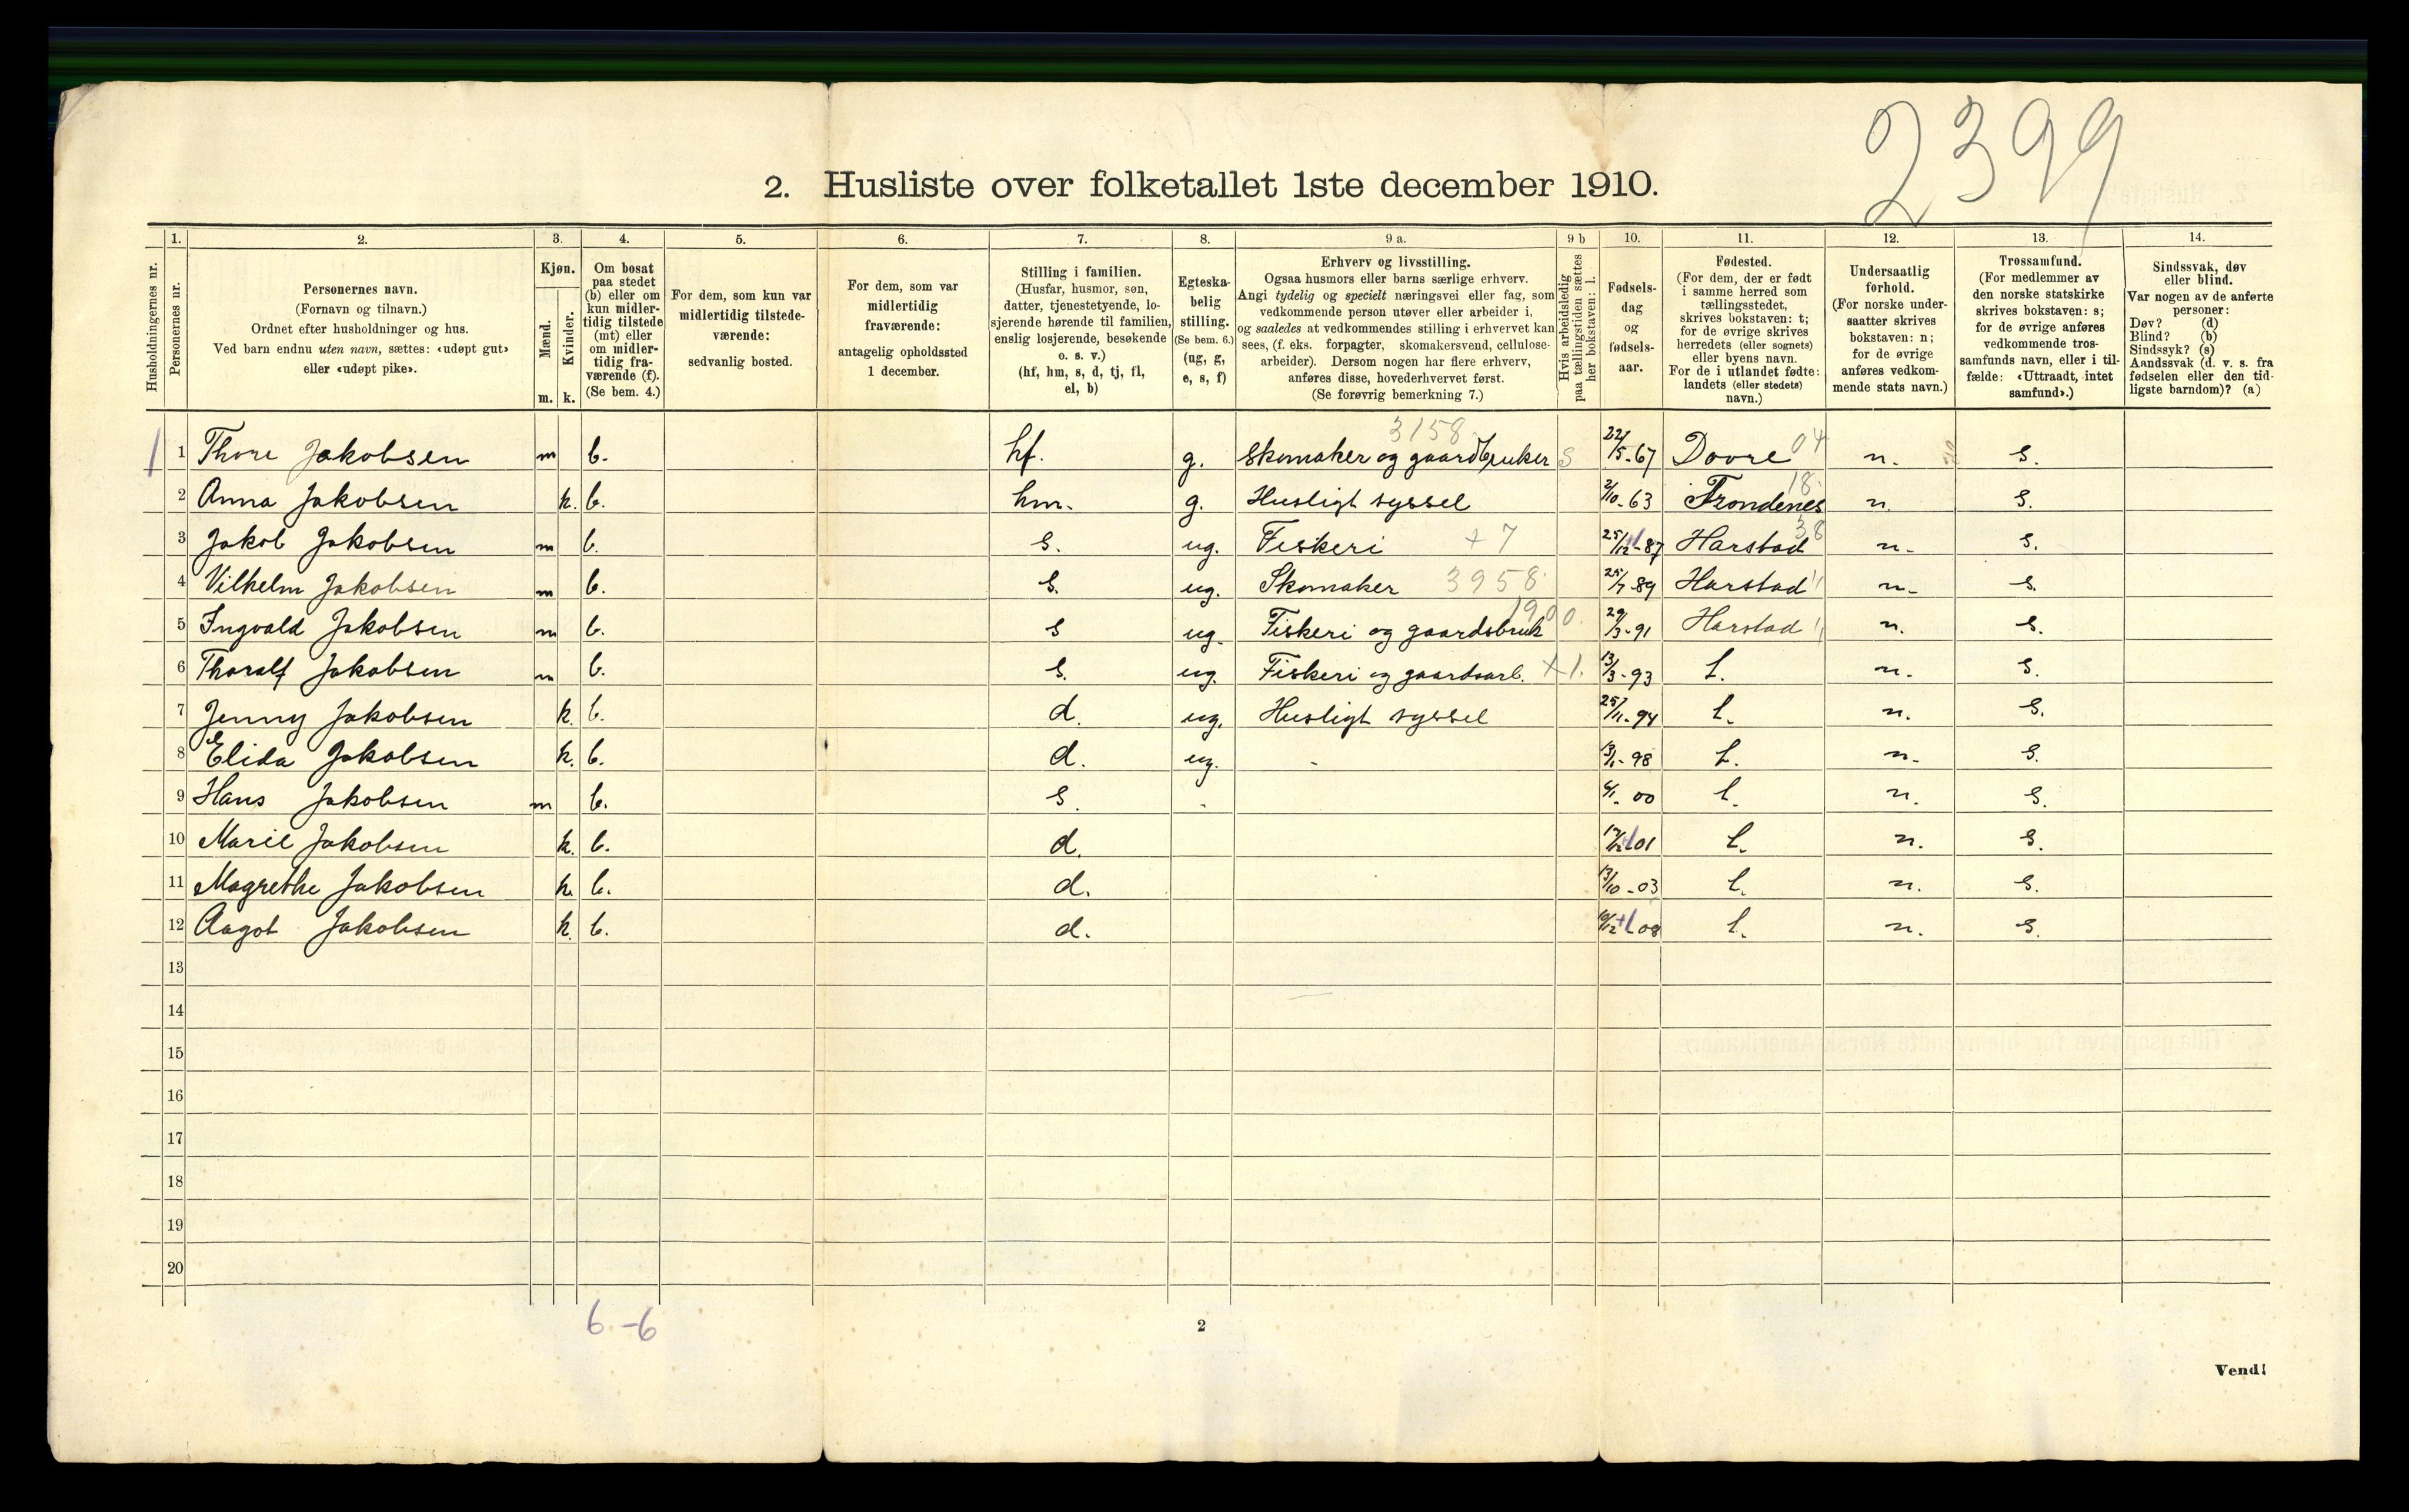 2399
2. Husliste over folketallet 1ste december 1910.
1. 2. 3. 4. 5. 6. 7. 8. 9 a. 9 b 10. 11. 12. 13. 14.
Husholdningernes nr.
Personernes nr.
Personernes navn.
(Fornavn og tilnavn.)
Ordnet efter husholdninger og hus.
Ved barn endnu uten navn, sættes: «udøpt gut»
eller «udøpt pike».
Kjøn.
Mænd.
Kvinder.
m. k.
Om bosat
paa stedet
(b) eller om
kun midler-
tidig tilstede
(mt) eller
om midler-
tidig fra-
værende (f).
(Se bem. 4.)
For dem, som kun var
midlertidig tilstede-
værende:
sedvanlig bosted.
For dem, som var
midlertidig
fraværende:
antagelig opholdssted
1 december.
Stilling i familien.
(Husfar, husmor, søn,
datter, tjenestetyende, lo-
sjerende hørende til familien,
enslig losjerende, besøkende
o. s. v.)
(hf, hm, s, d, tj, fl,
el, b)
Egteska-
belig
stilling.
(Se bem. 6.)
(ug, g,
e, s, f)
Erhverv og livsstilling.
Ogsaa husmors eller barns særlige erhverv.
Angi tydelig og specielt næringsvei eller fag, som
vedkommende person utøver eller arbeider i,
og saaledes at vedkommendes stilling i erhvervet kan
sees, (f. eks. forpagter, skomakersvend, cellulose-
arbeider). Dersom nogen har flere erhverv,
anføres disse, hovederhvervet først.
(Se forøvrig bemerkning 7.)
Hvis arbeidsledig
paa tællingstiden sættes
her bokstaven: l.
Fødsels-
dag
og
fødsels-
aar.
Fødested.
(For dem, der er født
i samme herred som
tællingsstedet,
skrives bokstaven: t;
for de øvrige skrives
herredets (eller sognets)
eller byens navn.
For de i utlandet fødte:
landets (eller stedets)
navn.)
Undersaatlig
forhold.
(For norske under-
saatter skrives
bokstaven: n;
for de øvrige
anføres vedkom-
mende stats navn.)
Trossamfund.
(For medlemmer av
den norske statskirke
skrives bokstaven: s;
for de øvrige anføres
vedkommende tros-
samfunds navn, eller i til-
fælde: «Uttraadt, intet
samfund».)
Sindssvak, døv
eller blind.
Var nogen av de anførte
personer:
Døv? (d)
Blind? (b)
Sindssyk? (s)
Aandssvak (d. v. s. fra
fødselen eller den tid-
ligste barndom)? (a)
3158.
1 1 Thore Jakobsen m b. hf. g. Skomaker og gaardbruker S 22/5-67 Dovre 04 n. s.
2 Anna Jakobsen k. b. hm. g. Husligt syssel 2/10-63 Trondenes 18. n. s.
3 Jakob Jakobsen m b. s. ug. Fiskeri +7 25/12-87 Harstad 38 n. s.
4 Vilhelm Jakobsen m b. s. ug. Skomaker 3958 25/7-89 Harstad " n. s.
5 Ingvald Jakobsen m b. s ug. Fiskeri og gaardsbruk 1900. 29/3-91 Harstad " n. s.
6 Thoralf Jakobsen m b. s. ug. Fiskeri og gaardsarb. +1. 13/3-93 t. n. s.
7 Jenny Jakobsen k. b. d. ug. Husligt syssel 25/11-94 t. n. s.
8 Elida Jakobsen k. b. d. ug. - 13/1-98 t. n. s.
9 Hans Jakobsen m b. s. - 6/1-00 t. n. s.
10 Marie Jakobsen k. b. d. 01 t. n. s.
11 Magrethe Jakobsen k. b. d. 13/10-03 t. n. s.
12 Aagot Jakobsen k. b. d. 08 t. n. s.
13
14
15
16
17
18
19
20
6-6
2
Vend!